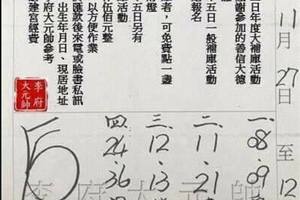 日年度大補庫活動
謝參加的善信大德
者，可免費點一盞
五日一般補庫活動
報名
五日另有
活動
伍佰元整
以方便作業
匯款後來電或臉書私訊
出生年月日、現居地址
府大元帥參考
建宮經費
李府
大元帥
11月27日
至12
一、08.09
二、11.21
三、12.13
四、24.36
李府大元帥